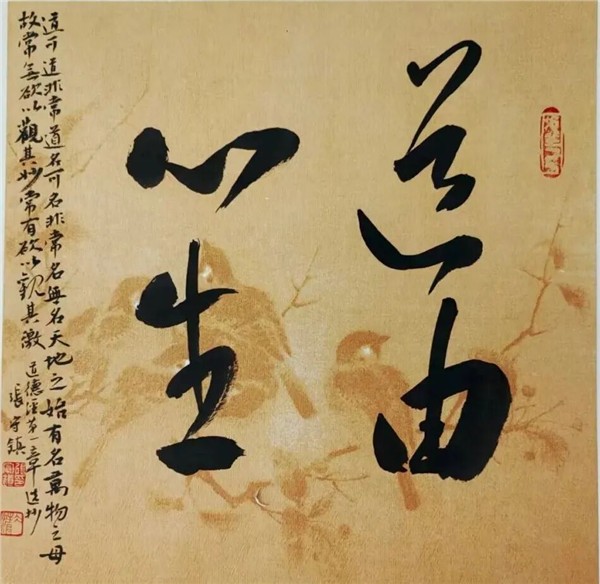 道由
心生
道可道非常道名可名非常名無名天地之始有名萬物之母
故常無欲以觀其妙常有欲以观其徼
道德经第一章选抄
張守鎮